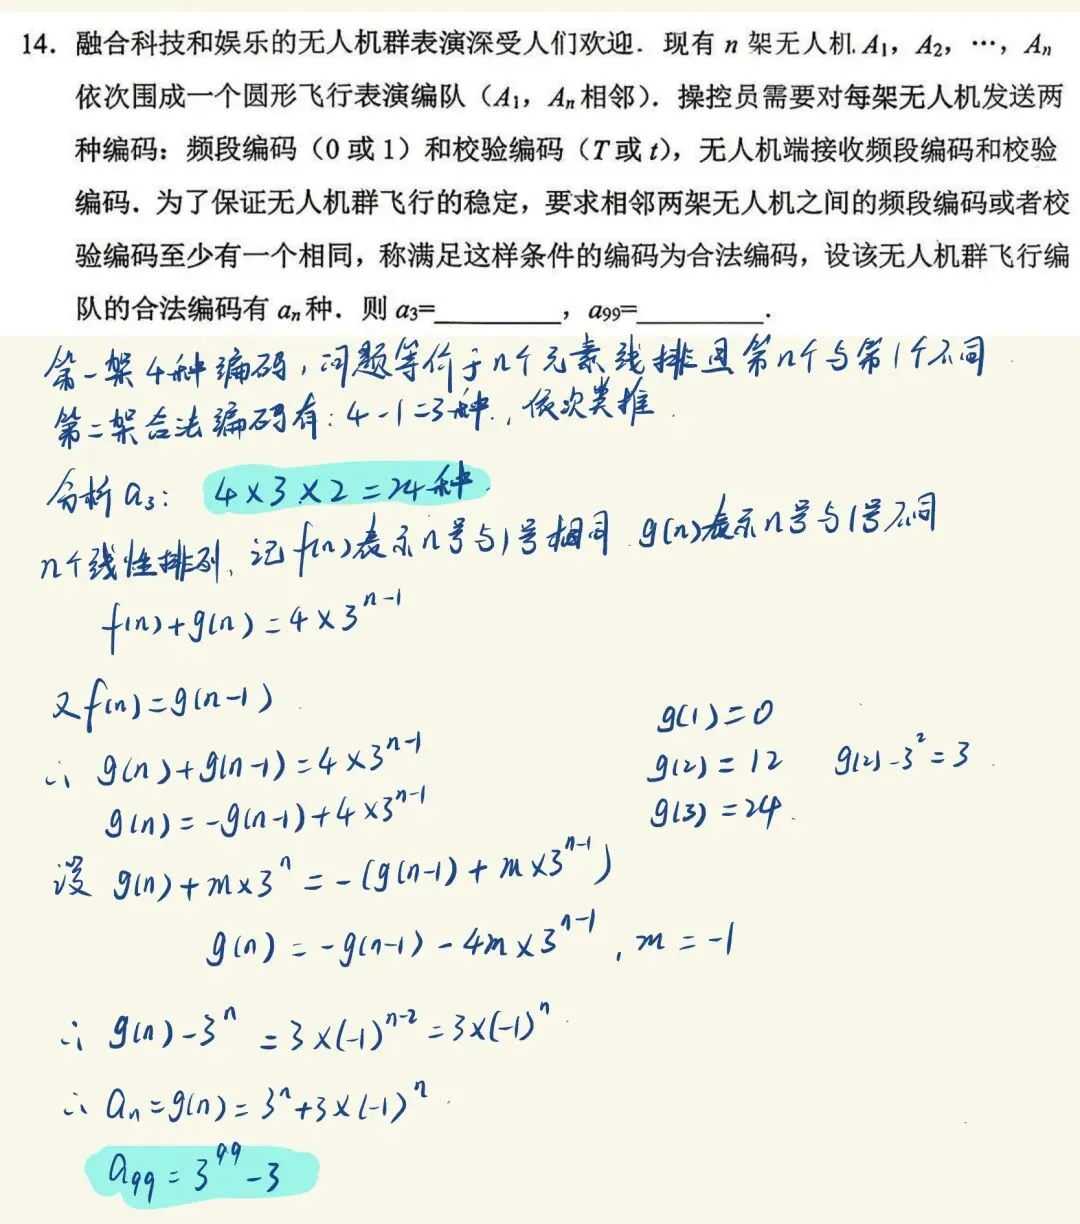 14. 融合科技和娱乐的无人机群表演深受人们欢迎. 现有 n 架无人机 A₁, A₂, …, Aₙ
依次围成一个圆形飞行表演编队 (A₁, Aₙ 相邻). 操控员需要对每架无人机发送两
种编码: 频段编码 (0 或 1) 和校验编码 (T 或 t), 无人机端接收频段编码和校验
编码. 为了保证无人机群飞行的稳定, 要求相邻两架无人机之间的频段编码或者校
验编码至少有一个相同, 称满足这样条件的编码为合法编码, 设该无人机群飞行编
队的合法编码有 aₙ 种. 则 a₃=__________, a₉₉=__________.
第一架4种编码, 问题等价于n个元素线排且第n个与第1个不同
第二架合法编码有: 4-1=3种, 依次类推.
分析 a₃: 4×3×2=24种
n个线性排列, 记 f(n)表示n号与1号相同 g(n)表示n号与1号不同
f(n)+g(n)=4×3ⁿ⁻¹
又f(n)=g(n-1)
g(1)=0
∴ g(n)+g(n-1)=4×3ⁿ⁻¹
g(2)=12 g(2)-3²=3
g(n)=-g(n-1)+4×3ⁿ⁻¹
g(3)=24.
设 g(n)+m×3ⁿ=-(g(n-1)+m×3ⁿ⁻¹)
g(n)=-g(n-1)-4m×3ⁿ⁻¹, m=-1
∴ g(n)-3ⁿ=3×(-1)ⁿ⁻²=3×(-1)ⁿ
∴ aₙ=g(n)=3ⁿ+3×(-1)ⁿ
a₉₉=3⁹⁹-3